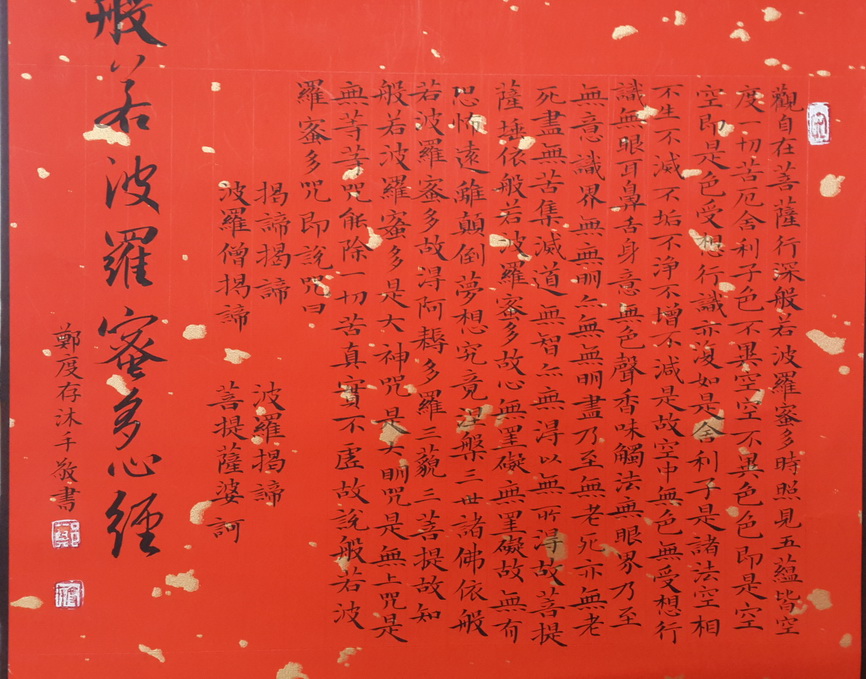 觀自在菩薩行深般若波羅蜜多時照見五蘊皆空
度一切苦厄舍利子色不異空空不異色色即是空
空即是色受想行識亦復如是舍利子是諸法空相
不生不滅不垢不淨不增不減是故空中無色無受想行
識無眼耳鼻舌身意無色聲香味觸法無眼界乃至
無意識界無無眀亦無無眀盡乃至無老死亦無老
死盡無苦集滅道無智亦無得以無所得故菩提
薩埵依般若波羅蜜多故心無罣礙無罣礙故無有
恐怖遠離顛倒夢想究竟涅槃三世諸佛依般
若波羅蜜多故得阿耨多羅三藐三菩提故知
般若波羅蜜多是大神咒是大眀咒是無上咒是
無等等咒能除一切苦真實不虛故說般若波
羅蜜多咒即說咒曰
揭諦揭諦 波羅揭諦
波羅僧揭諦 菩提薩婆訶
般若波羅蜜多心經
鄭度存沐手敬書